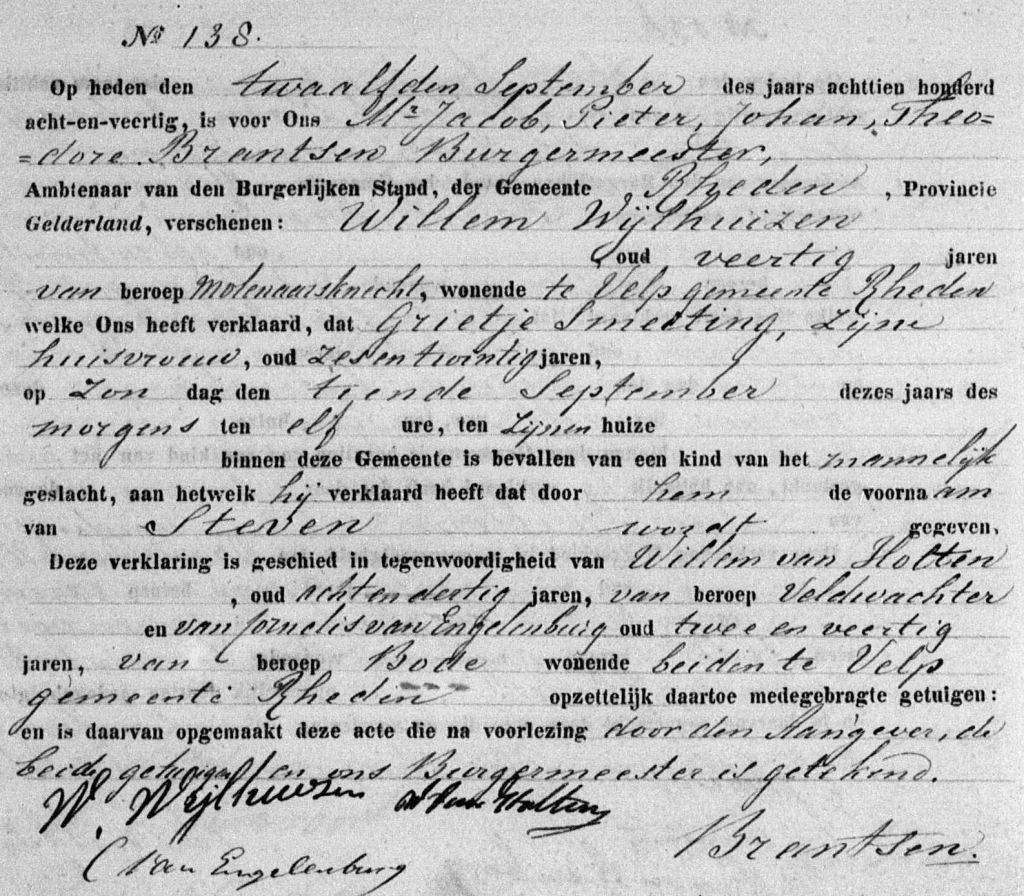 No 138.
Op heden den twaalfden September des jaars achttien honderd
acht-en-veertig, is voor Ons Mr Jacob, Pieter, Johan, Theo=
=dore Brantsen Burgermeester,
Ambtenaar van den Burgerlijken Stand, der Gemeente Rheden, Provincie
Gelderland, verschenen: Willem Wijlhuizen
, oud veertig jaren
van beroep Molenaarsknecht, wonende te Velp gemeente Rheden
welke Ons heeft verklaard, dat Grietje Smeeting, zijne
huisvrouw, oud zes en twintig jaren,
op Zon dag den tiende September dezes jaars des
morgens ten elf ure, ten zijnen huize
binnen deze Gemeente is bevallen van een kind van het mannelijk
geslacht, aan hetwelk hij verklaard heeft dat door hem de voornaam
van Steven wordt gegeven.
Deze verklaring is geschied in tegenwoordigheid van Willem van Holten
, oud acht en dertig jaren, van beroep Veldwachter
en van Cornelis van Engelenburg oud twee en veertig
jaren, van beroep Bode wonende beiden te Velp
gemeente Rheden opzettelijk daartoe medegebragte getuigen:
en is daarvan opgemaakt deze acte die na voorlezing door den Aangever, de
beide getuigen en ons Burgermeester is getekend.
W. Wijlhuizen W van Holten
C van Engelenburg Brantsen.